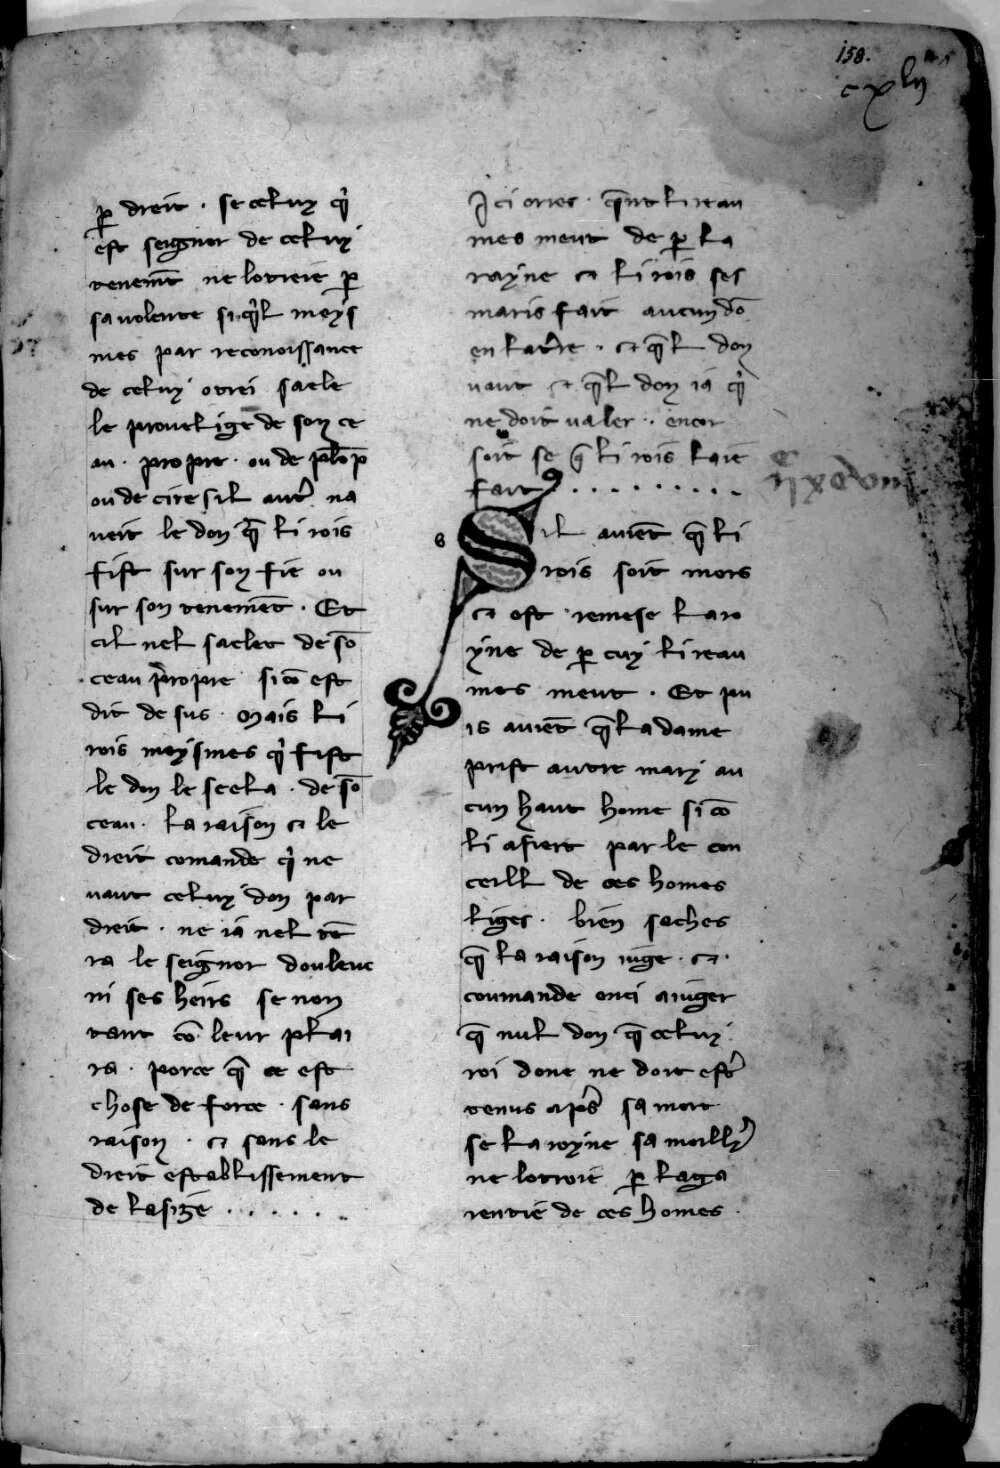 158.
cxlii
ꝑ dreit · se celuy qͥ
est seignor de celuy
tenemēt ne lotreie ꝑ
sa volente si qͥl meys
mes par reconoissance
de celuy otrei saele
le preuelige de son ce
au · propre · ou de plōp
ou de cire sil autͬ na
veit le don q̄ li rois
fist sur son fie ou
sur son tenemēt · Et
cil nel saelet de sō
ceau propre si cō est
dit de sus · Mais li
rois meysmes qͥ fist
le don le seela · de sō
ceau · la raison et le
dreit comande qͥ ne
vaut celuy don par
dreit · ne ia nel tē
ra le seignor dou leuc
ni ses heirs se non
tant cō leur plai
ra · porce q̄ ce est
chose de force · sans
raison · et sans le
dreit establissement
de lasize · · · · · ·
Ici orres · q̄nt li reau
mes meut de ꝑ la
rayne et li rois ses
maris fait aucun dō
en la tͬre · et q̄l don
vaut et q̄l don ia qͥ
ne doit valer · encor
soit se q̄ li rois laie
fait · · · · · · · · ·
Sil auiēt q̄ li
rois soit mors
et est remese la ro
yne de ꝑ cuy li reau
mes meut · Et pu
is auiēt q̄ la dame
prist autre mary au
cun haut home si cō
li afiert par le con
ceill de ces homes
liges · bien saches
q̄ la raison iuge · et ·
coumande enci a iuger
q̄ nul don q̄ celuy
roi done ne doit estͬ
tenus apͬs sa mort
se la royne sa moillͬ
ne lotroie ꝑ la ga
rentie de ces homes ·